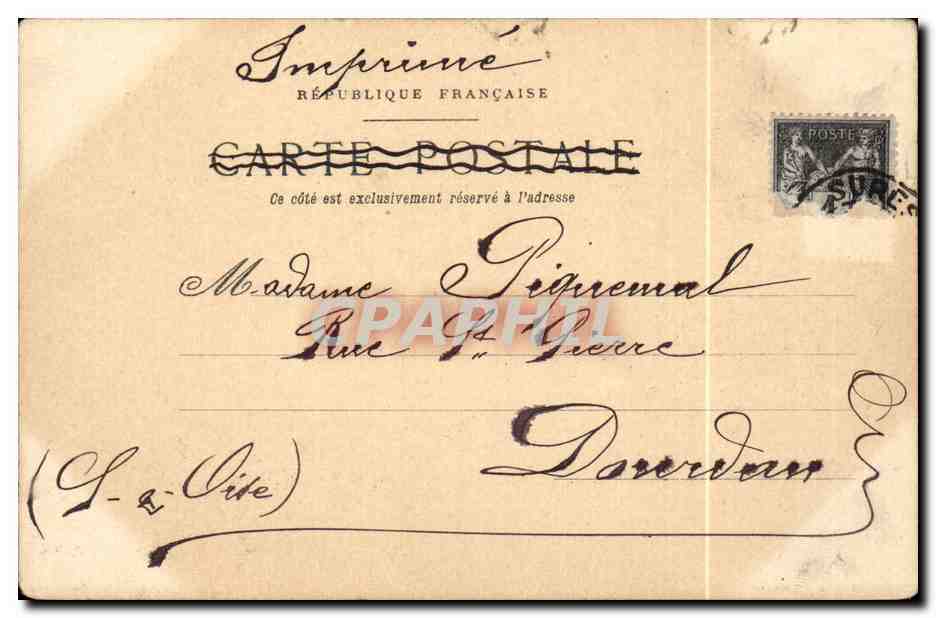 Imprimé
RÉPUBLIQUE FRANÇAISE
CARTE POSTALE
POSTE
SURES
Ce côté est exclusivement réservé à l'adresse
Madame Piquemal
CPAPHIL
Rue St Pierre
Dourdan
(S-&-Oise)